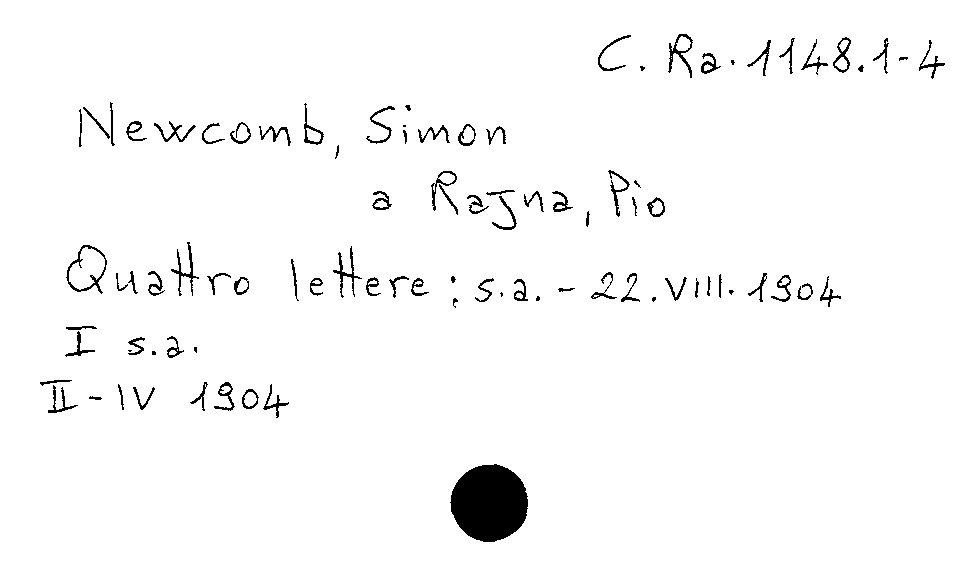 C. Ra. 1148.1-4
Newcomb, Simon
a Rajna, Pio
Quattro lettere : s.a. - 22.VIII.1904
I s.a.
II-IV 1904